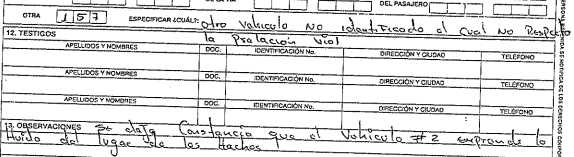 DEL PASAJERO
OTRA 157 ESPECIFICAR ¿CUÁL?: otro Vehiculo No identificado el cual No Respeto
la Prelacion Vial
12. TESTIGOS
APELLIDOS Y NOMBRES DOC. IDENTIFICACIÓN No. DIRECCIÓN Y CIUDAD TELÉFONO
APELLIDOS Y NOMBRES DOC. IDENTIFICACIÓN No. DIRECCIÓN Y CIUDAD TELÉFONO
APELLIDOS Y NOMBRES DOC. IDENTIFICACIÓN No. DIRECCIÓN Y CIUDAD TELÉFONO
13. OBSERVACIONES Se deja Constancia que el Vehiculo #2 emprende la
Huida del lugar de los hechos